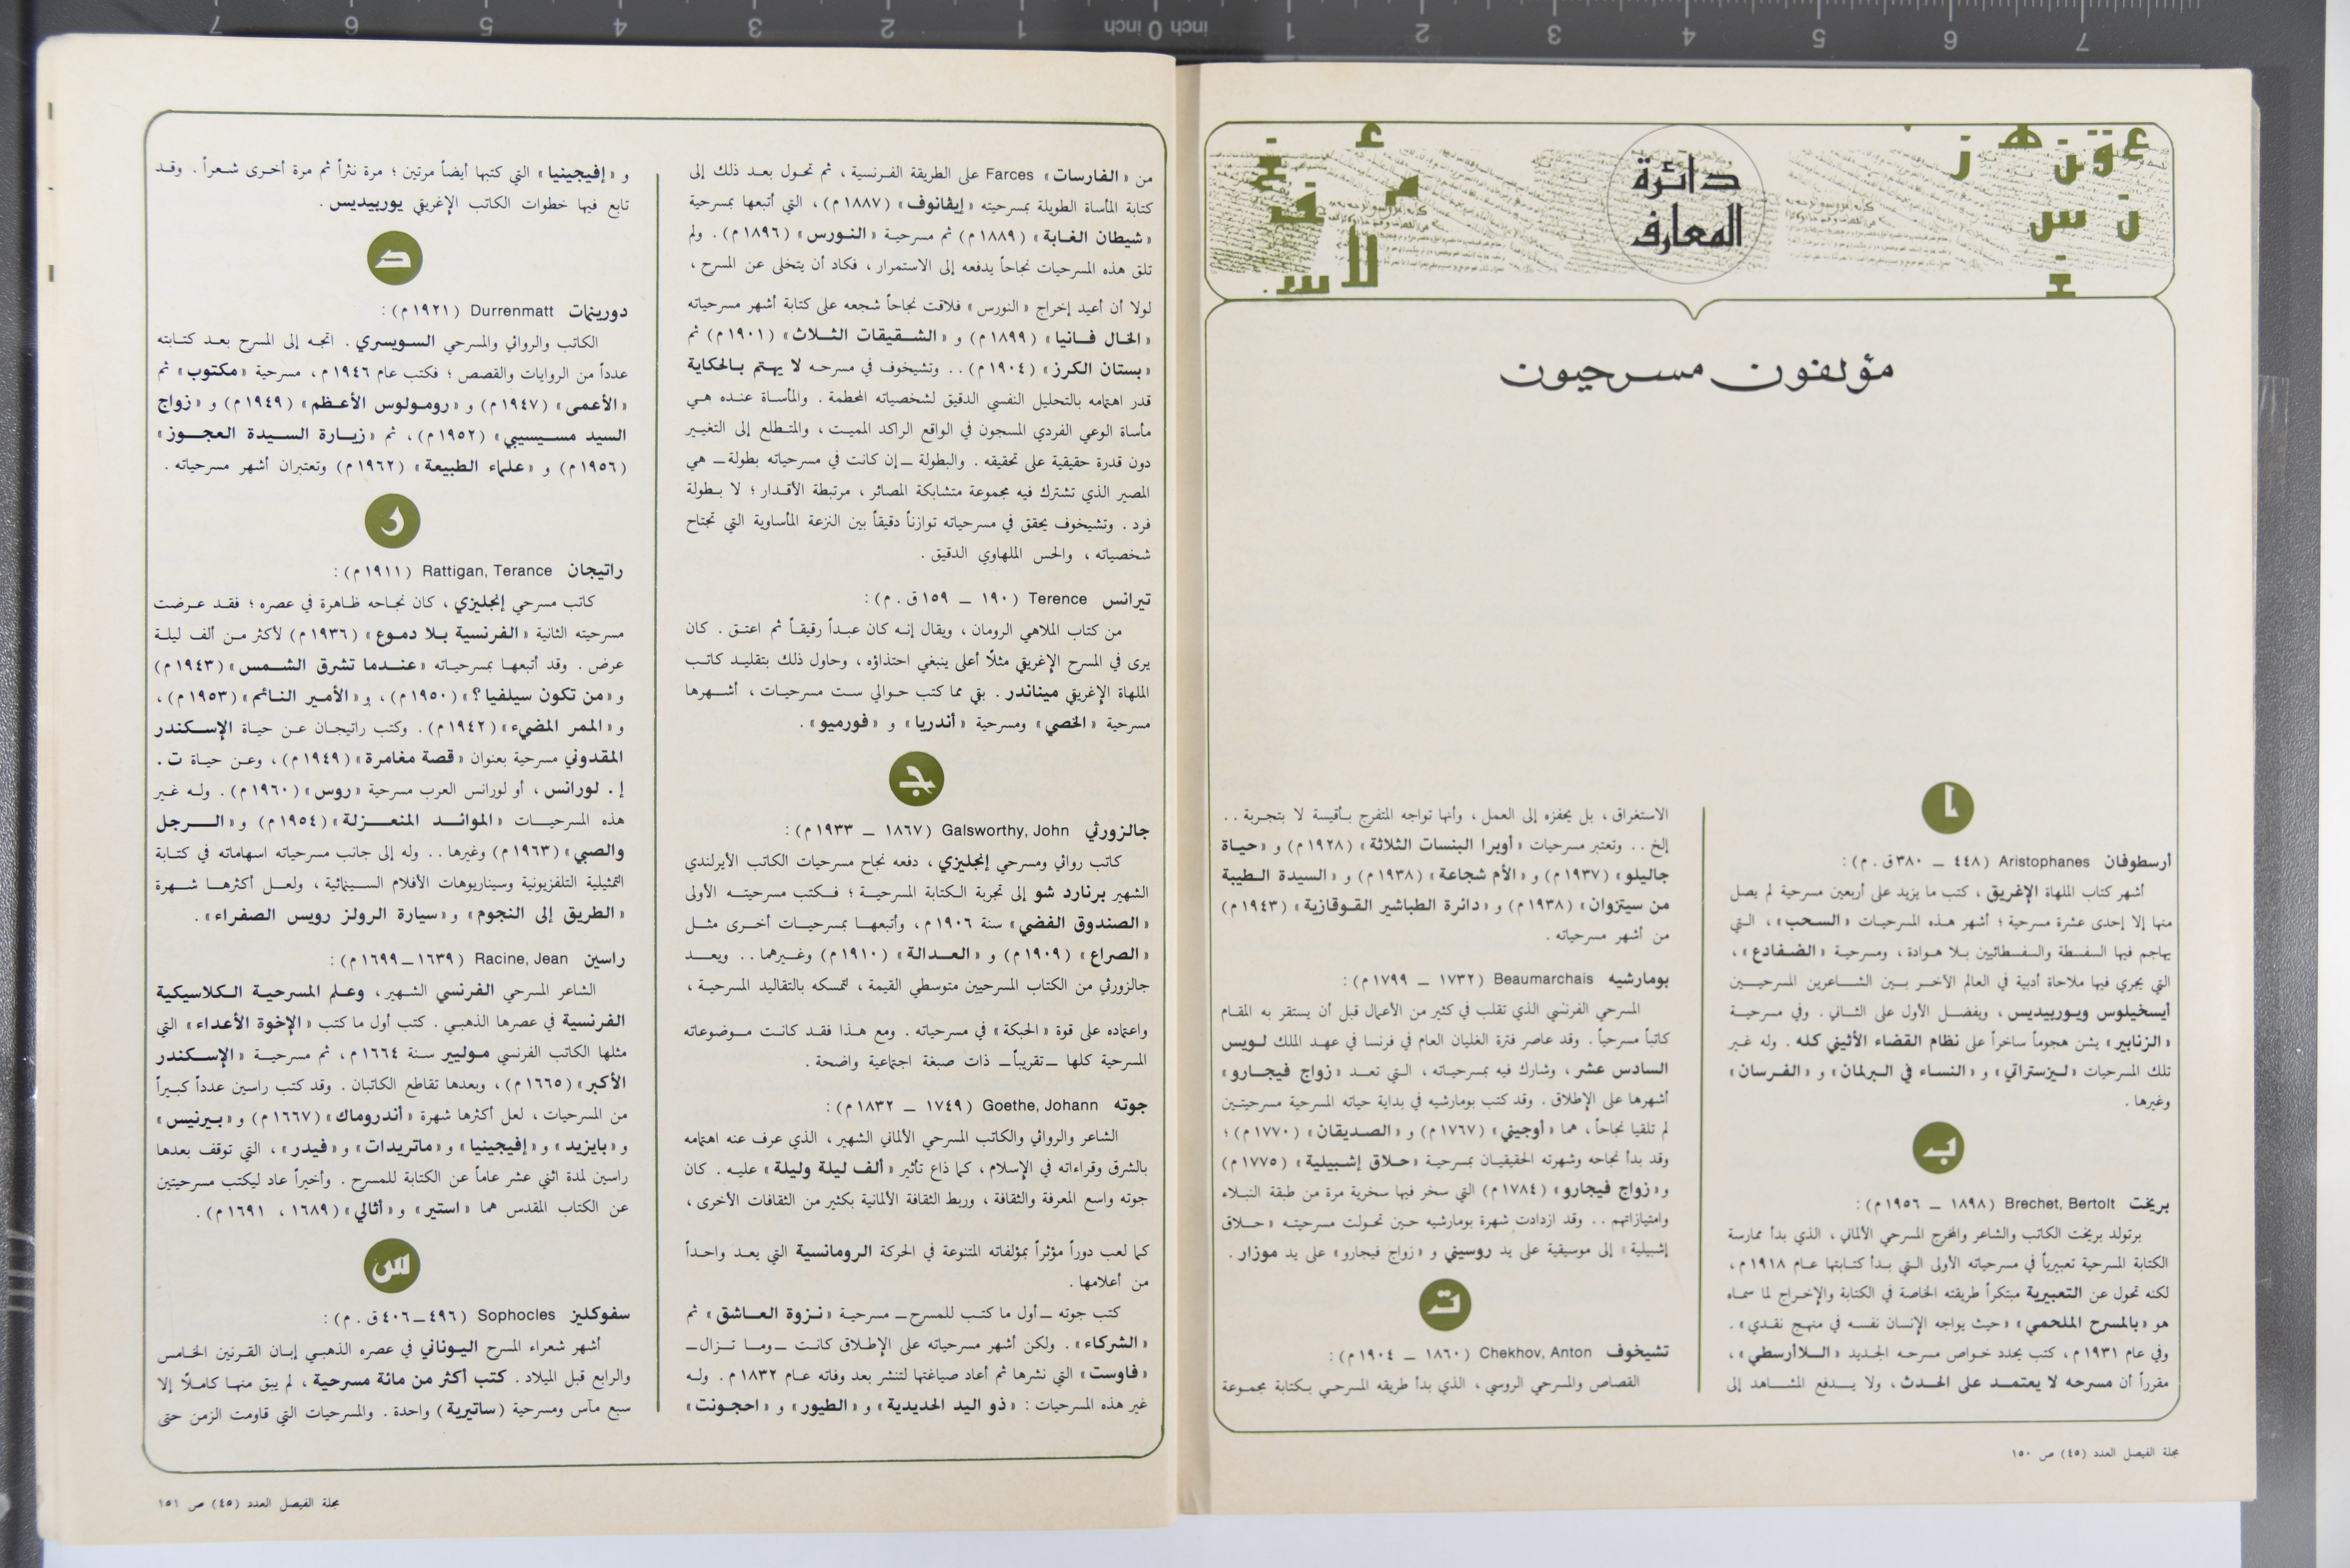 دائرة
المعارف
مؤلفون مسرحيون
ا
أرسطوفان Aristophanes (٤٤٨ ــ ٣٨٠ق . م) :
أشهر كتاب الملهاة الإغريق ، كتب ما يزيد على أربعين مسرحية لم يصل
منها إلا إحدى عشرة مسرحية ؛ أشهر هذه المسرحيات «السحب» ، التي
يهاجم فيها السفسطة والسفسطائيين بلا هوادة ، ومسرحية «الضفادع» ،
التي يجري فيها ملاحاة أدبية في العالم الآخر بين الشاعرين المسرحيين
أيسخيلوس ويوربيديس ، ويفضل الأول على الثاني . وفي مسرحية
«الزنابير» يشن هجوماً ساخراً على نظام القضاء الأثيني كله . وله غير
تلك المسرحيات «ليزستراتي» و «النساء في البرلمان» و «الفرسان»
وغيرها .
ب
بريخت Brechet, Bertolt (١٨٩٨ ــ ١٩٥٦م) :
برتولد بريخت الكاتب والشاعر والمخرج المسرحي الألماني ، الذي بدأ ممارسة
الكتابة المسرحية تعبيرياً في مسرحياته الأولى التي بدأ كتابتها عام ١٩١٨م ،
لكنه تحول عن التعبيرية مبتكراً طريقته الخاصة في الكتابة والإخراج لما سماه
هو «بالمسرح الملحمي» «حيث يواجه الإنسان نفسه في منهج نقدي» .
وفي عام ١٩٣١م ، كتب يحدد خواص مسرحه الجديد «اللاأرسطي» ،
مقرراً أن مسرحه لا يعتمد على الحدث ، ولا يدفع المشاهد إلى
الاستغراق ، بل يحفزه إلى العمل ، وأنها تواجه المتفرج بأقيسة لا بتجربة . .
إلخ . . وتعتبر مسرحيات «أوبرا البنسات الثلاثة» (١٩٢٨م) و «حياة
جاليلو» (١٩٣٧م) و «الأم شجاعة» (١٩٣٨م) و «السيدة الطيبة
من سيتزوان» (١٩٣٨م) و «دائرة الطباشير القوقازية» (١٩٤٣م)
من أشهر مسرحياته .
بومارشيه Beaumarchais (١٧٣٢ ــ ١٧٩٩م) :
المسرحي الفرنسي الذي تقلب في كثير من الأعمال قبل أن يستقر به المقام
كاتباً مسرحياً . وقد عاصر فترة الغليان العام في فرنسا في عهد الملك لويس
السادس عشر ، وشارك فيه بمسرحياته ، التي تعد «زواج فيجارو»
أشهرها على الإطلاق . وقد كتب بومارشيه في بداية حياته المسرحية مسرحيتين
لم تلقيا نجاحاً ، هما «أوجيني» (١٧٦٧م) و «الصديقان» (١٧٧٠م) ؛
وقد بدأ نجاحه وشهرته الحقيقيان بمسرحية «حلاق إشبيلية» (١٧٧٥م)
و «زواج فيجارو» (١٧٨٤م) التي سخر فيها سخرية مرة من طبقة النبلاء
وامتيازاتهم . . وقد ازدادت شهرة بومارشيه حين تحولت مسرحيته «حلاق
إشبيلية» إلى موسيقية على يد روسيني و «زواج فيجارو» على يد موزار .
ت
تشيخوف Chekhov, Anton (١٨٦٠ ــ ١٩٠٤م) :
القصاص والمسرحي الروسي ، الذي بدأ طريقه المسرحي بكتابة مجموعة
مجلة الفيصل العدد (٤٥) ص ١٥٠
من «الفارسات» Farces على الطريقة الفرنسية ، ثم تحول بعد ذلك إلى
كتابة المأساة الطويلة بمسرحيته «إيڤانوف» (١٨٨٧م) ، التي أتبعها بمسرحية
«شيطان الغابة» (١٨٨٩م) ثم مسرحية «النورس» (١٨٩٦م) . ولم
تلق هذه المسرحيات نجاحاً يدفعه إلى الاستمرار ، فكاد أن يتخلى عن المسرح ،
لولا أن أعيد إخراج «النورس» فلاقت نجاحاً شجعه على كتابة أشهر مسرحياته
«الخال فانيا» (١٨٩٩م) و «الشقيقات الثلاث» (١٩٠١م) ثم
«بستان الكرز» (١٩٠٤م) . . وتشيخوف في مسرحه لا يهتم بالحكاية
قدر اهتمامه بالتحليل النفسي الدقيق لشخصياته المحطمة . والمأساة عنده هي
مأساة الوعي الفردي المسجون في الواقع الراكد المميت ، والمتطلع إلى التغيير
دون قدرة حقيقية على تحقيقه . والبطولة ــ إن كانت في مسرحياته بطولة ــ هي
المصير الذي تشترك فيه مجموعة متشابكة المصائر ، مرتبطة الأقدار ؛ لا بطولة
فرد . وتشيخوف يحقق في مسرحياته توازناً دقيقاً بين النزعة المأساوية التي تجتاح
شخصياته ، والحس الملهاوي الدقيق .
تيرانس Terence (١٩٠ ــ ١٥٩ق . م) :
من كتاب الملاهي الرومان ، ويقال إنه كان عبداً رقيقاً ثم اعتق . كان
يرى في المسرح الإغريقي مثلاً أعلى ينبغي احتذاؤه ، وحاول ذلك بتقليد كاتب
الملهاة الإغريقي ميناندر . بقي مما كتب حوالي ست مسرحيات ، أشهرها
مسرحية «الخصي» ومسرحية «أندريا» و «فورميو» .
ج
جالزورثي Galsworthy, John (١٨٦٧ ــ ١٩٣٣م) :
كاتب روائي ومسرحي إنجليزي ، دفعه نجاح مسرحيات الكاتب الأيرلندي
الشهير برنارد شو إلى تجربة الكتابة المسرحية ؛ فكتب مسرحيته الأولى
«الصندوق الفضي» سنة ١٩٠٦م ، وأتبعها بمسرحيات أخرى مثل
«الصراع» (١٩٠٩م) و «العدالة» (١٩١٠م) وغيرهما . . ويعد
جالزورثي من الكتاب المسرحيين متوسطي القيمة ، لتمسكه بالتقاليد المسرحية ،
واعتماده على قوة «الحبكة» في مسرحياته . ومع هذا فقد كانت موضوعاته
المسرحية كلها ــ تقريباً ــ ذات صبغة اجتماعية واضحة .
جوته Goethe, Johann (١٧٤٩ ــ ١٨٣٢م) :
الشاعر والروائي والكاتب المسرحي الألماني الشهير ، الذي عرف عنه اهتمامه
بالشرق وقراءاته في الإسلام ، كما ذاع تأثير «ألف ليلة وليلة» عليه . كان
جوته واسع المعرفة والثقافة ، وربط الثقافة الألمانية بكثير من الثقافات الأخرى ،
كما لعب دوراً مؤثراً بمؤلفاته المتنوعة في الحركة الرومانسية التي يعد واحداً
من أعلامها .
كتب جوته ــ أول ما كتب للمسرح ــ مسرحية «نزوة العاشق» ثم
«الشركاء» . ولكن أشهر مسرحياته على الإطلاق كانت ــ وما تزال ــ
«فاوست» التي نشرها ثم أعاد صياغتها لتنشر بعد وفاته عام ١٨٣٢م . وله
غير هذه المسرحيات : «ذو اليد الحديدية» و «الطيور» و «احجونت»
و «إفيجينيا» التي كتبها أيضاً مرتين ؛ مرة نثراً ثم مرة أخرى شعراً . وقد
تابع فيها خطوات الكاتب الإغريقي يوربيديس .
د
دورينمات Durrenmatt (١٩٢١م) :
الكاتب والروائي والمسرحي السويسري . اتجه إلى المسرح بعد كتابته
عدداً من الروايات والقصص ؛ فكتب عام ١٩٤٦م ، مسرحية «مكتوب» ثم
«الأعمى» (١٩٤٧م) و «رومولوس الأعظم» (١٩٤٩م) و «زواج
السيد مسيسيبي» (١٩٥٢م) ، ثم «زيارة السيدة العجوز»
(١٩٥٦م) و «علماء الطبيعة» (١٩٦٢م) وتعتبران أشهر مسرحياته .
ر
راتيجان Rattigan, Terance (١٩١١م) :
كاتب مسرحي إنجليزي ، كان نجاحه ظاهرة في عصره ؛ فقد عرضت
مسرحيته الثانية «الفرنسية بلا دموع» (١٩٣٦م) لأكثر من ألف ليلة
عرض . وقد أتبعها بمسرحياته «عندما تشرق الشمس» (١٩٤٣م)
و «من تكون سيلفيا؟» (١٩٥٠م) ، و «الأمير النائم» (١٩٥٣م) ،
و «الممر المضيء» (١٩٤٢م) . وكتب راتيجان عن حياة الإسكندر
المقدوني مسرحية بعنوان «قصة مغامرة» (١٩٤٩م) ، وعن حياة ت .
إ . لورانس ، أو لورانس العرب مسرحية «روس» (١٩٦٠م) . وله غير
هذه المسرحيات «الموائد المنعزلة» (١٩٥٤م) و «الرجل
والصبي» (١٩٦٣م) وغيرها . . وله إلى جانب مسرحياته اسهاماته في كتابة
التمثيلية التلفزيونية وسيناريوهات الأفلام السينمائية ، ولعل أكثرها شهرة
«الطريق إلى النجوم» و «سيارة الرولز رويس الصفراء» .
راسين Racine, Jean (١٦٣٩ــ١٦٩٩م) :
الشاعر المسرحي الفرنسي الشهير ، وعلم المسرحية الكلاسيكية
الفرنسية في عصرها الذهبي . كتب أول ما كتب «الإخوة الأعداء» التي
مثلها الكاتب الفرنسي موليير سنة ١٦٦٤م ، ثم مسرحية «الإسكندر
الأكبر» (١٦٦٥م) ، وبعدها تقاطع الكاتبان . وقد كتب راسين عدداً كبيراً
من المسرحيات ، لعل أكثرها شهرة «أندروماك» (١٦٦٧م) و «بيرنيس»
و «بايزيد» و «إفيجينيا» و «ماتريدات» و «فيدر» ، التي توقف بعدها
راسين لمدة اثني عشر عاماً عن الكتابة للمسرح . وأخيراً عاد ليكتب مسرحيتين
عن الكتاب المقدس هما «استير» و «أثالي» (١٦٨٩ ، ١٦٩١م) .
س
سفوكليز Sophocles (٤٩٦ــ٤٠٦ق . م) :
أشهر شعراء المسرح اليوناني في عصره الذهبي إبان القرنين الخامس
والرابع قبل الميلاد . كتب أكثر من مائة مسرحية ، لم يبق منها كاملاً إلا
سبع مآس ومسرحية (ساتيرية) واحدة . والمسرحيات التي قاومت الزمن حتى
مجلة الفيصل العدد (٤٥) ص ١٥١